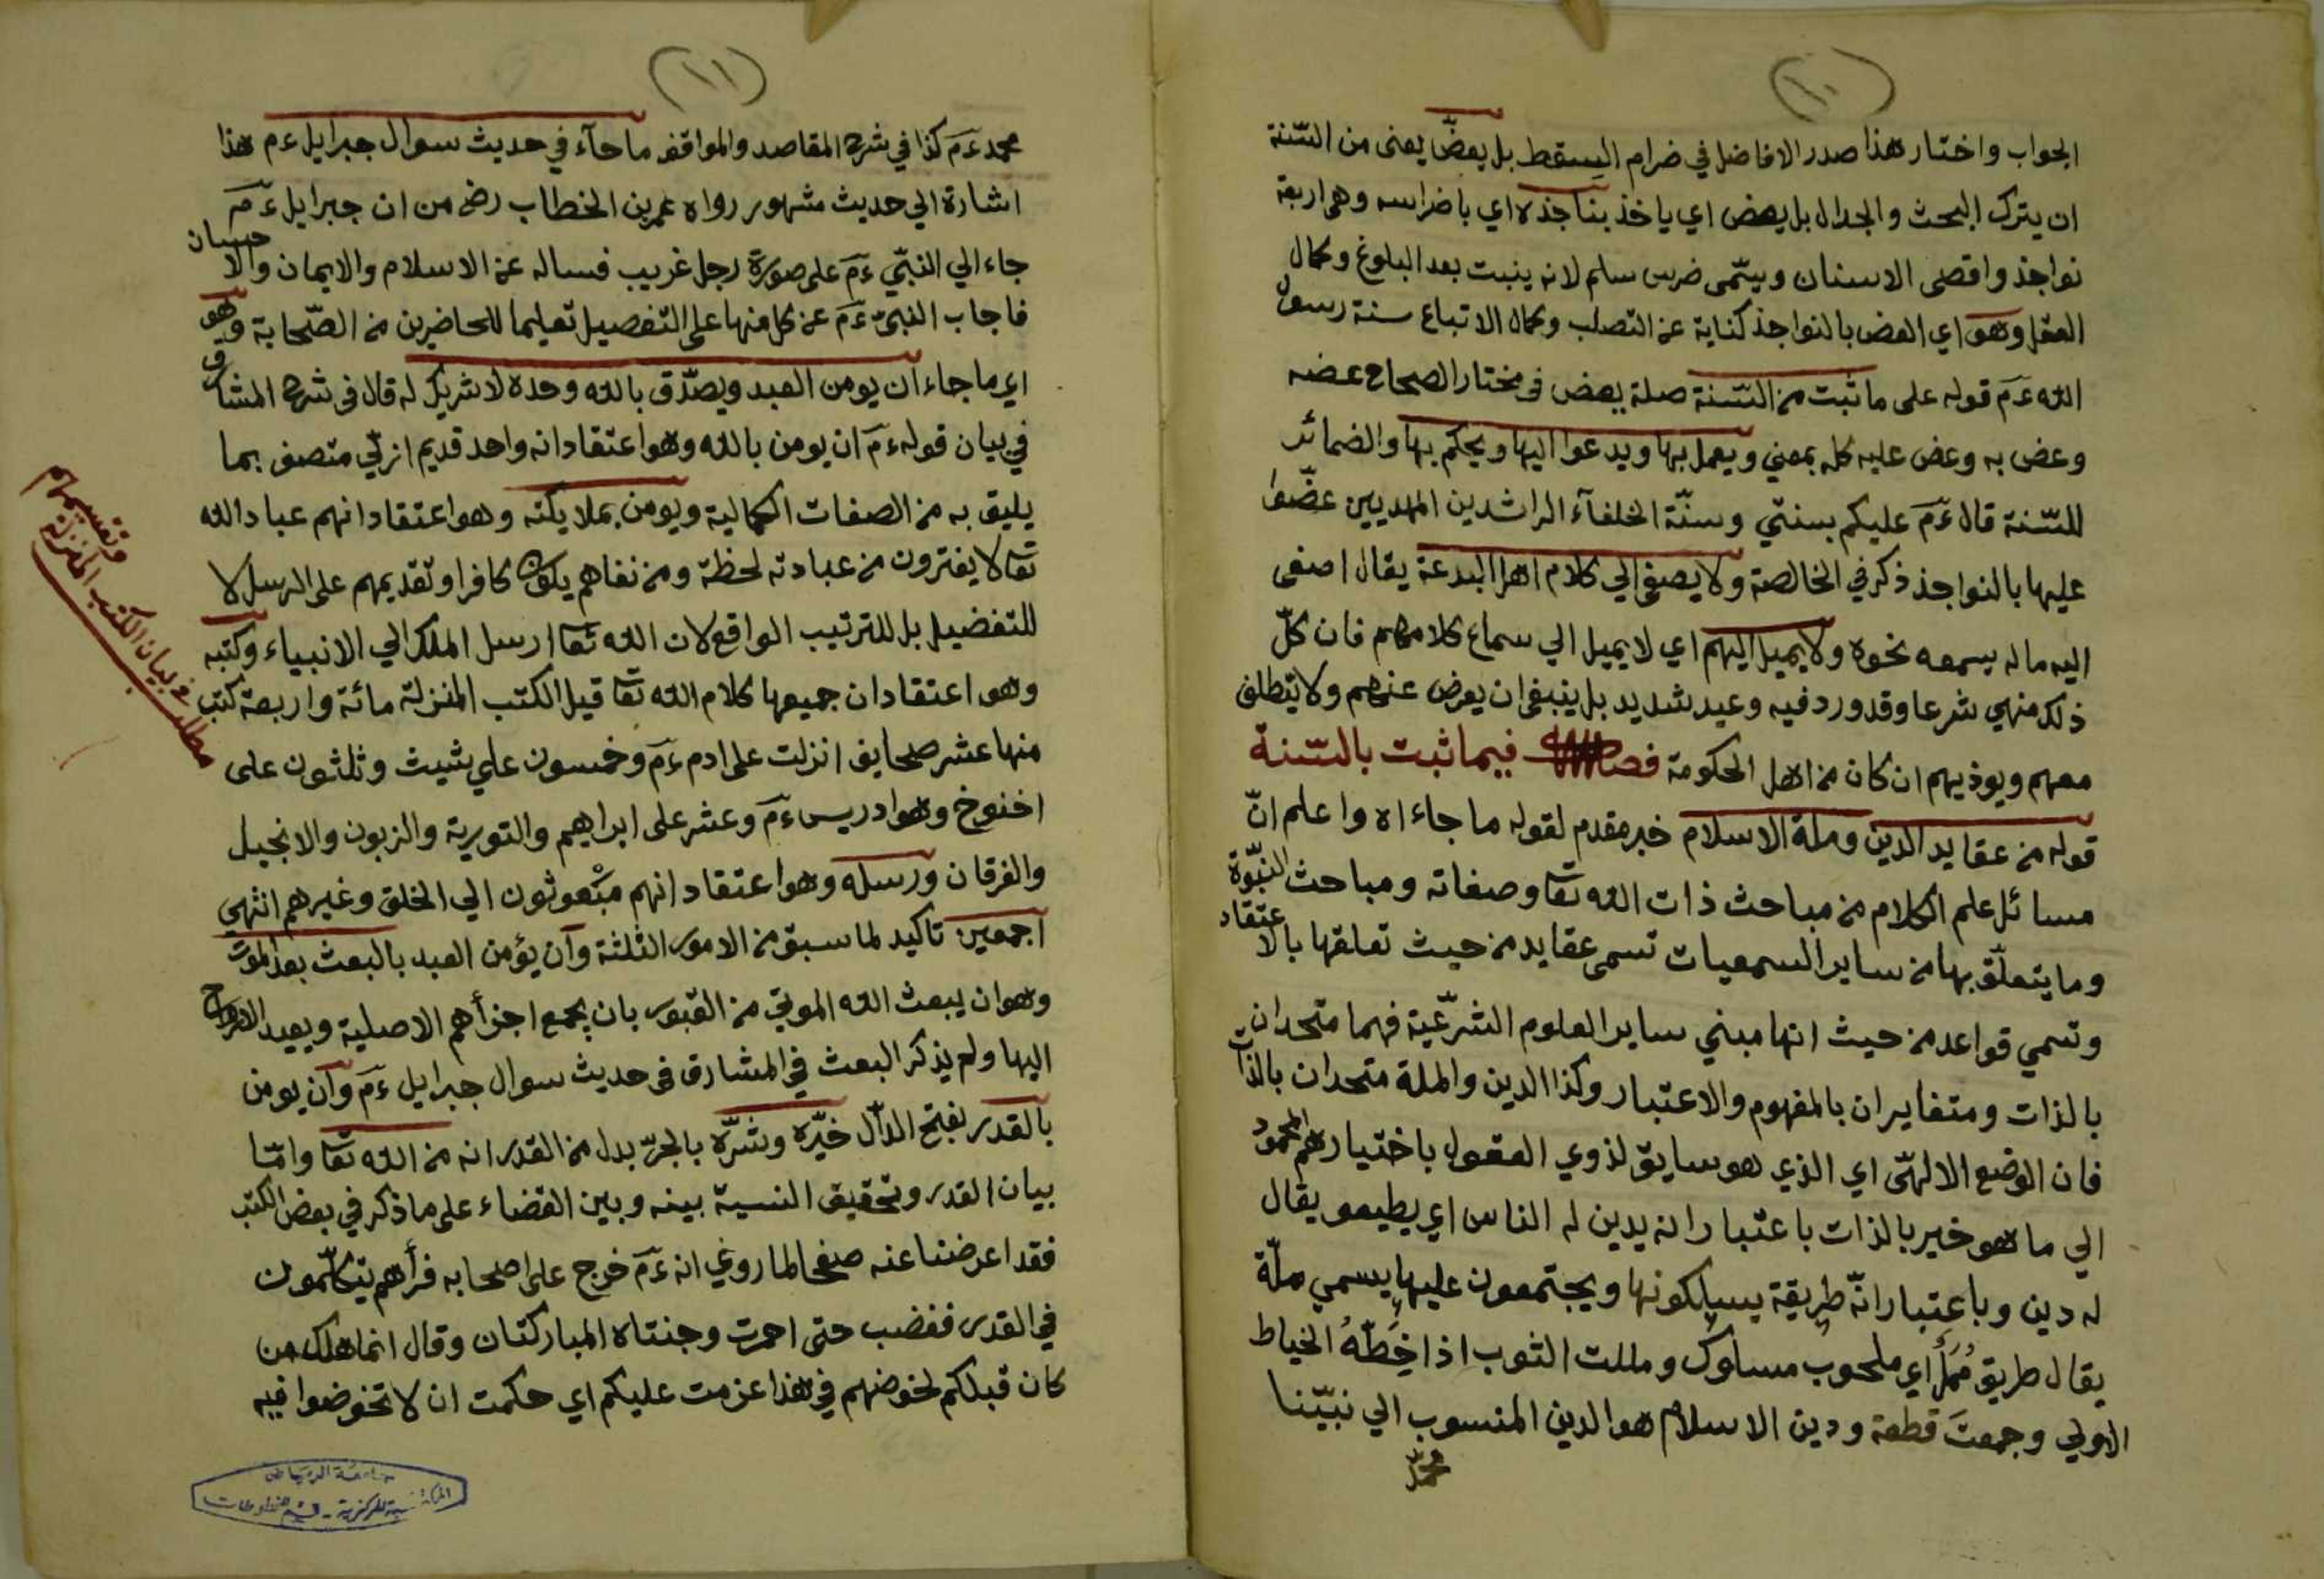 (١٠)
الجواب واختار هذا صدر الافاضل في ضرام السقط بل يعضّ يعنى من السّنة
ان يترك البحث والجدال بل يعض اي ياخذ بناجذه اي باضراسه وهي اربعة
نواجذ واقصى الاسنان ويسّمى ضرس سلم لانه ينبت بعد البلوغ وكمال
العقل وهو اي العض بالنواجذ كناية عن التصلب وكمال الاتباع سنة رسول
الله عۤمۤ قوله على ما ثبت من السّنة صلة يعض في مختار الصحاح عضه
وعض به وعض عليه كله بمعني ويعمل بها ويدعوا اليها ويحكم بها والضمائر
للسّنة قال عۤمۤ عليكم بسنتي وسنّة الخلفآء الراشدين المهديين عضّوا
عليها بالنواجذ ذكره في الخالصة ولا يصغى الي كلام اهل البدعة يقال اصغى
اليه ماله بسمعه نحوه ولا يميل اليهم اي لا يميل الي سماع كلامهم فان كلّ
ذلك منهي شرعا وقد ورد فيه وعيد شديد بل ينبغى ان يعرض عنهم ولا يتطلف
معهم ويوذيهم ان كان من اهل الحكومة فصل فيما ثبت بالسّنة
قوله من عقايد الدين وملة الاسلام خبر مقدم لقوله ما جاء اه واعلم انّ
مسائل علم الكلام من مباحث ذات الله تعا وصفاته ومباحث النبّوة
وما يتعلّق بها من ساير السمعيات تسمى عقايد من حيث تعلقها بالاعتقاد
وتسمي قواعد من حيث انها مبني ساير العلوم الشرّعية فهما متحدان
بالذات ومتغايران بالمفهوم والاعتبار وكذا الدين والملة متحدان بالذات
فان الوضع الالهّى اي الذي هو سايق لذوي العقول باختيارهم المحمود
الي ما هو خير بالذات باعتبار انه يدين له الناس اي يطيعو يقال
له دين وباعتبار انّه طريقة يسلكونها ويجتمعون عليها يسمي ملّة
يقال طريق مُمَلّ اي ملحوب مسلوك ومللت الثوب اذا خِطّهُ الخياط
الاولي وجمعتَ قطعة ودين الاسلام هو الدين المنسوب الي نبيّنا
محمّد
(١١)
محمد عۤمۤ كذا في شرح المقاصد والمواقف ما جآء في حديث سوال جبرايل عۤم هذا
اشارة الي حديث مشهور رواه عمر بن الخطاب رض من ان جبرايل عۤمۤ
جاء الي النبّي عۤمۤ على صورة رجل غريب فساله عن الاسلام والايمان والاحسان
فاجاب النبّي عۤمۤ عن كل منها على التفصيل تعليما للحاضرين من الصّحابة وهو
اي ما جاء ان يومن العبد ويصدّق بالله وحده لا شريك له قال فى شرح المشارق
في بيان قوله عۤمۤ ان يومن بالله وهو اعتقاد انه واحد قديم ازلّي متصف بما
يليق به من الصفات الكمالية ويومن بملايكته وهو اعتقاد انهم عباد الله
تعا لا يفترون من عبادته لحظة ومن نفاهم يكون كافرا وتقديمهم على الرسل لا
للتفضيل بل للترتيب الواقع لان الله تعا ارسل الملك الي الانبياء وكتبه
وهو اعتقاد ان جميعها كلام الله تعا قيل الكتب المنزلة مائة واربعة كتب
منها عشر صحايف انزلت على ادم عۤمۤ وخمسون علي شيث وثلثون على
اخنوخ وهو ادريس عۤمۤ وعشر على ابراهيم والتورية والزبون والانجيل
والفرقان ورسله وهو اعتقاد انهم مبْعوثون الي الخلق وغيرهم انتهي
اجمعين تاكيد لما سبق من الامور الثلثة وآن يؤمن العبد بالبعث بعد الموت
وهو ان يبعث الله الموتي من القبور بان يجمع اجزأهم الاصلية ويعيد الارواح
اليها ولم يذكر البعث في المشارق فى حديث سوال جبرايل عۤمۤ وآن يومن
بالقدر بفتح الدّال خيّره وشرّه بالجرّ بدل من القدر انه من الله تعا وامّا
بيان القدر وتحقيق النسبة بينه وبين القضاء على ما ذكر في بعض الكتب
فقد اعرضنا عنه صفحا لما روي انه عۤمۤ خرج على اصحابه فرأهم يتكلّمون
في القدر فغضب حتى احمرت وجنتاه المباركتان وقال انما هلك من
كان قبلكم لخوضهم في هذا عزمت عليكم اي حكمت ان لا تخوضوا فيه
مطلب في بيان الكتب المنزلة
وتقسيمهم
جامعة الرياض
المكتبة المركزية - قسم المخطوطات